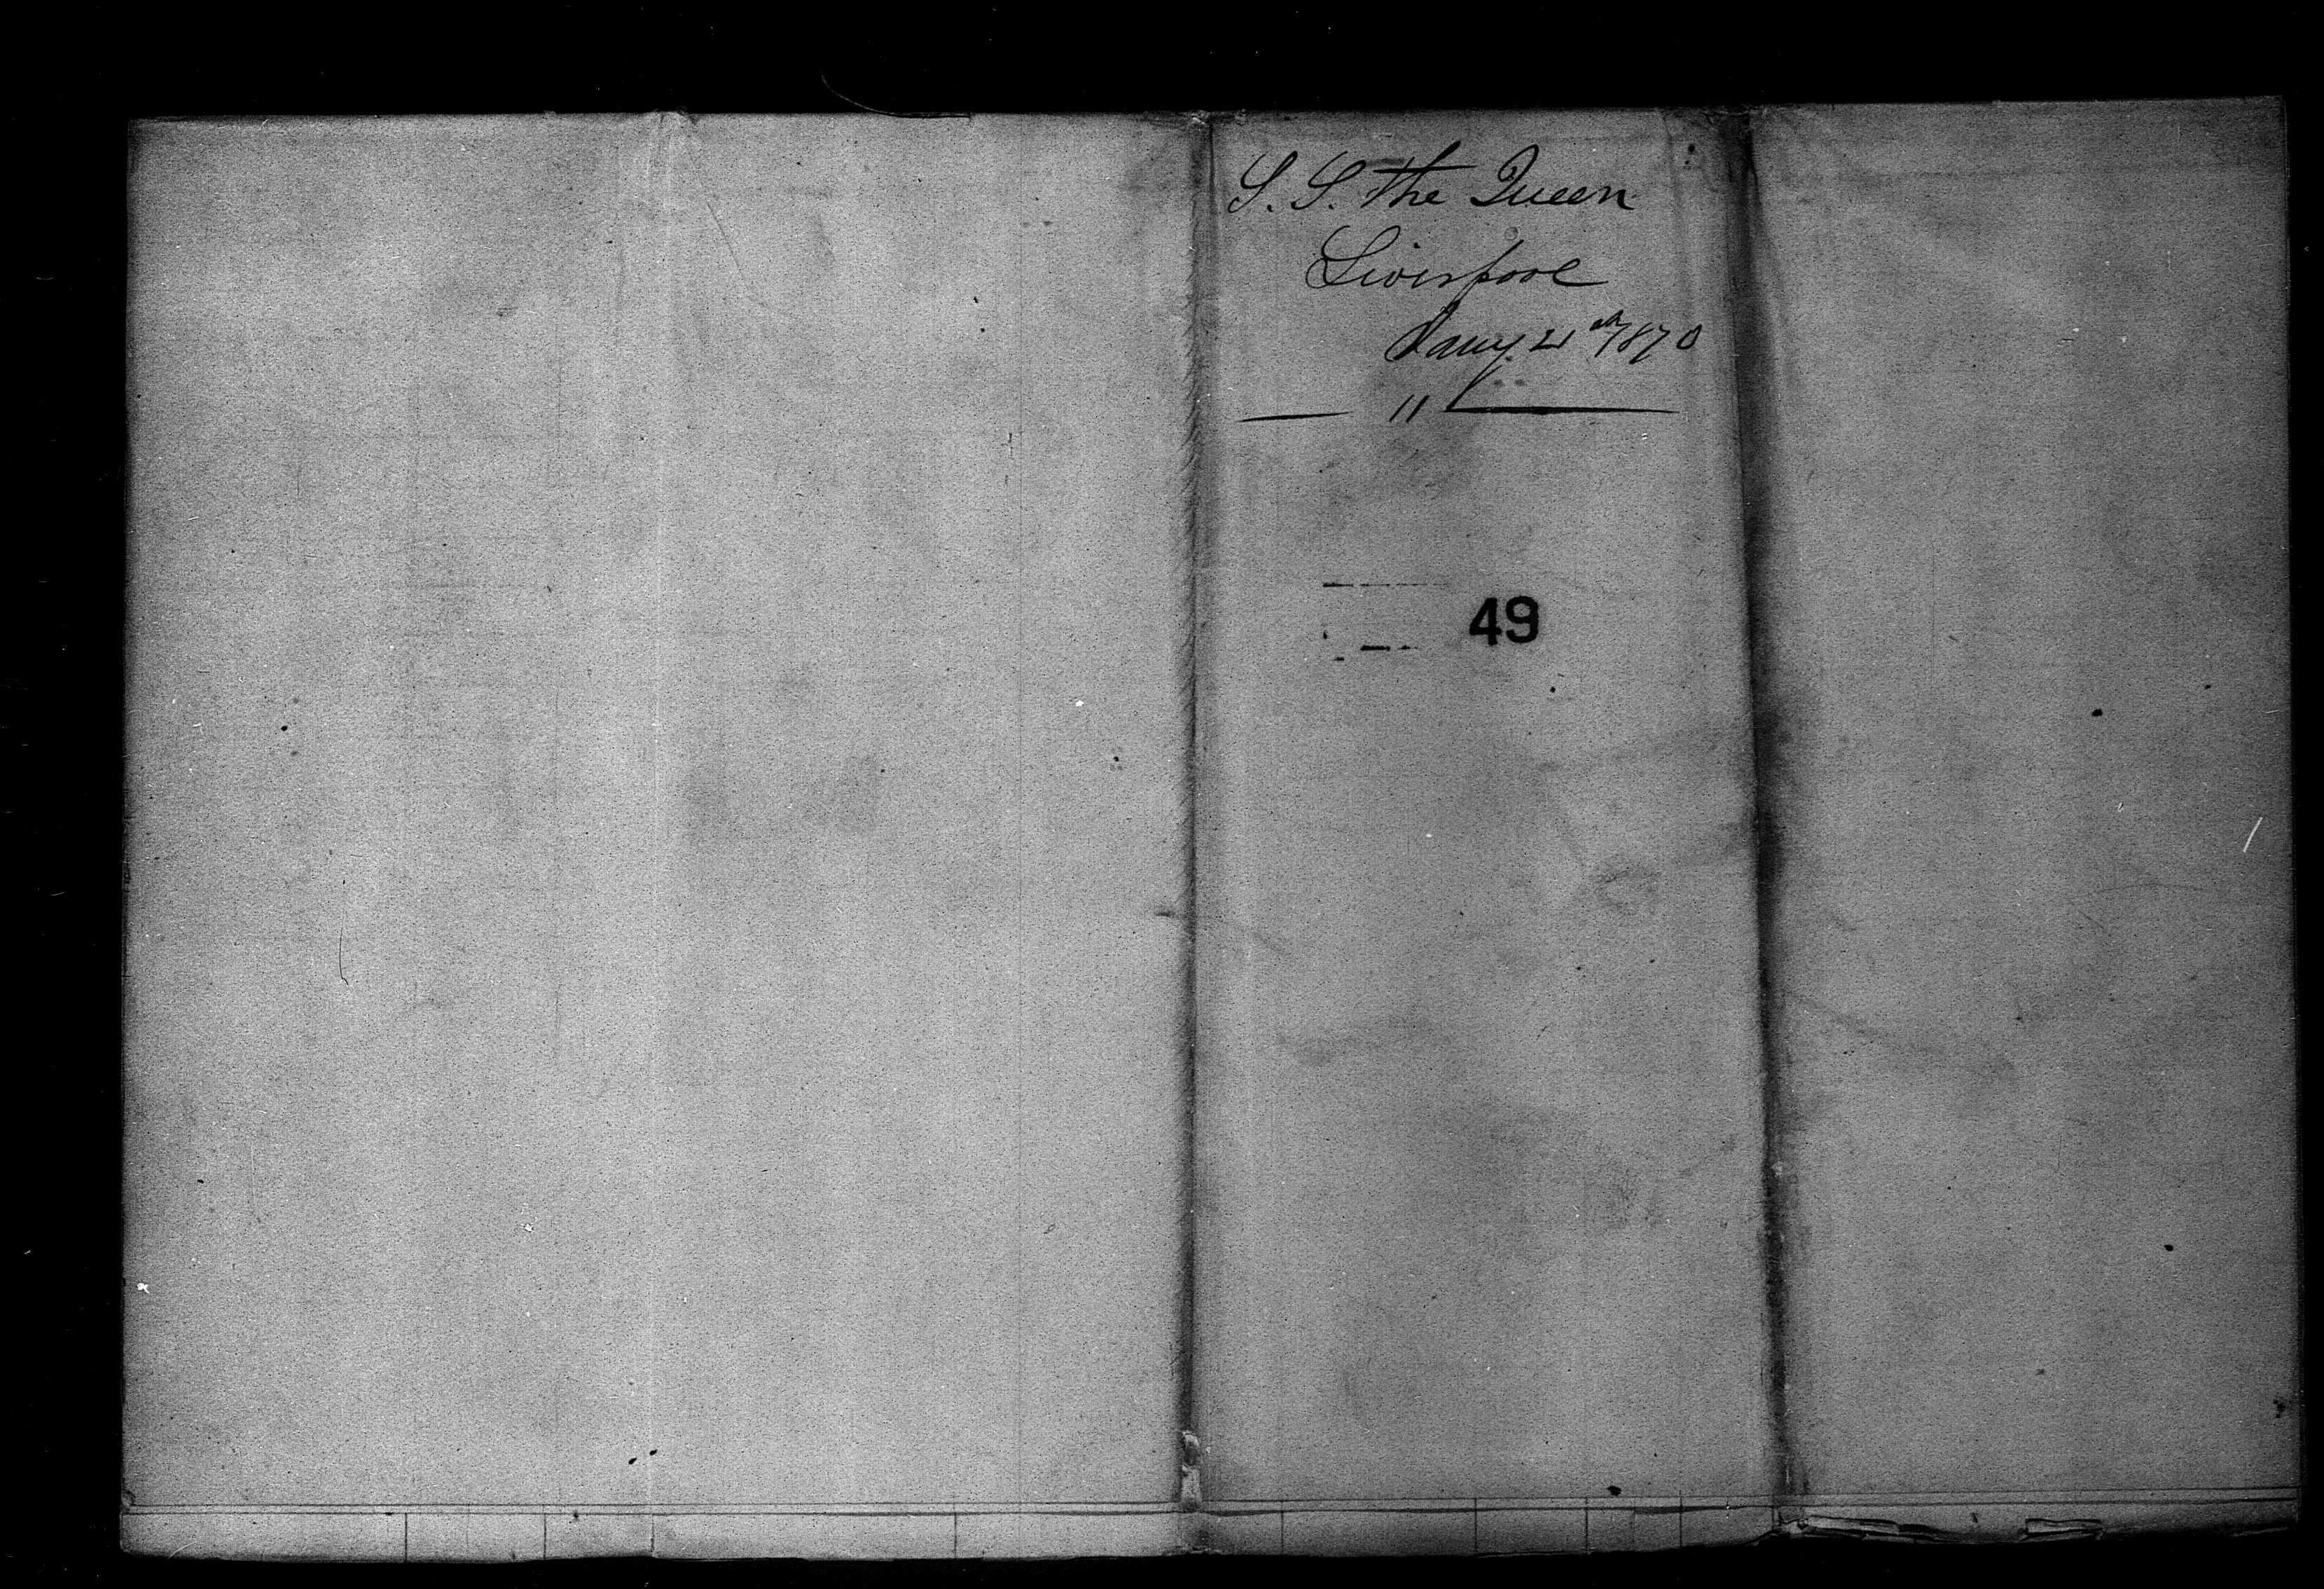 S. S. The Queen
Liverpool
Jany 21st 1870
— 11 —
49